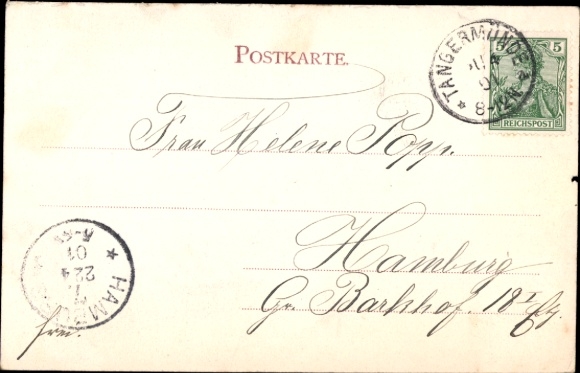 POSTKARTE.
TANGERMÜNDE
8-12V
5 5
REICHSPOST
Frau Helene Popp.
Hamburg
Gr. Barkhof. 18 I
HAMBURG
22 4
01
frei.